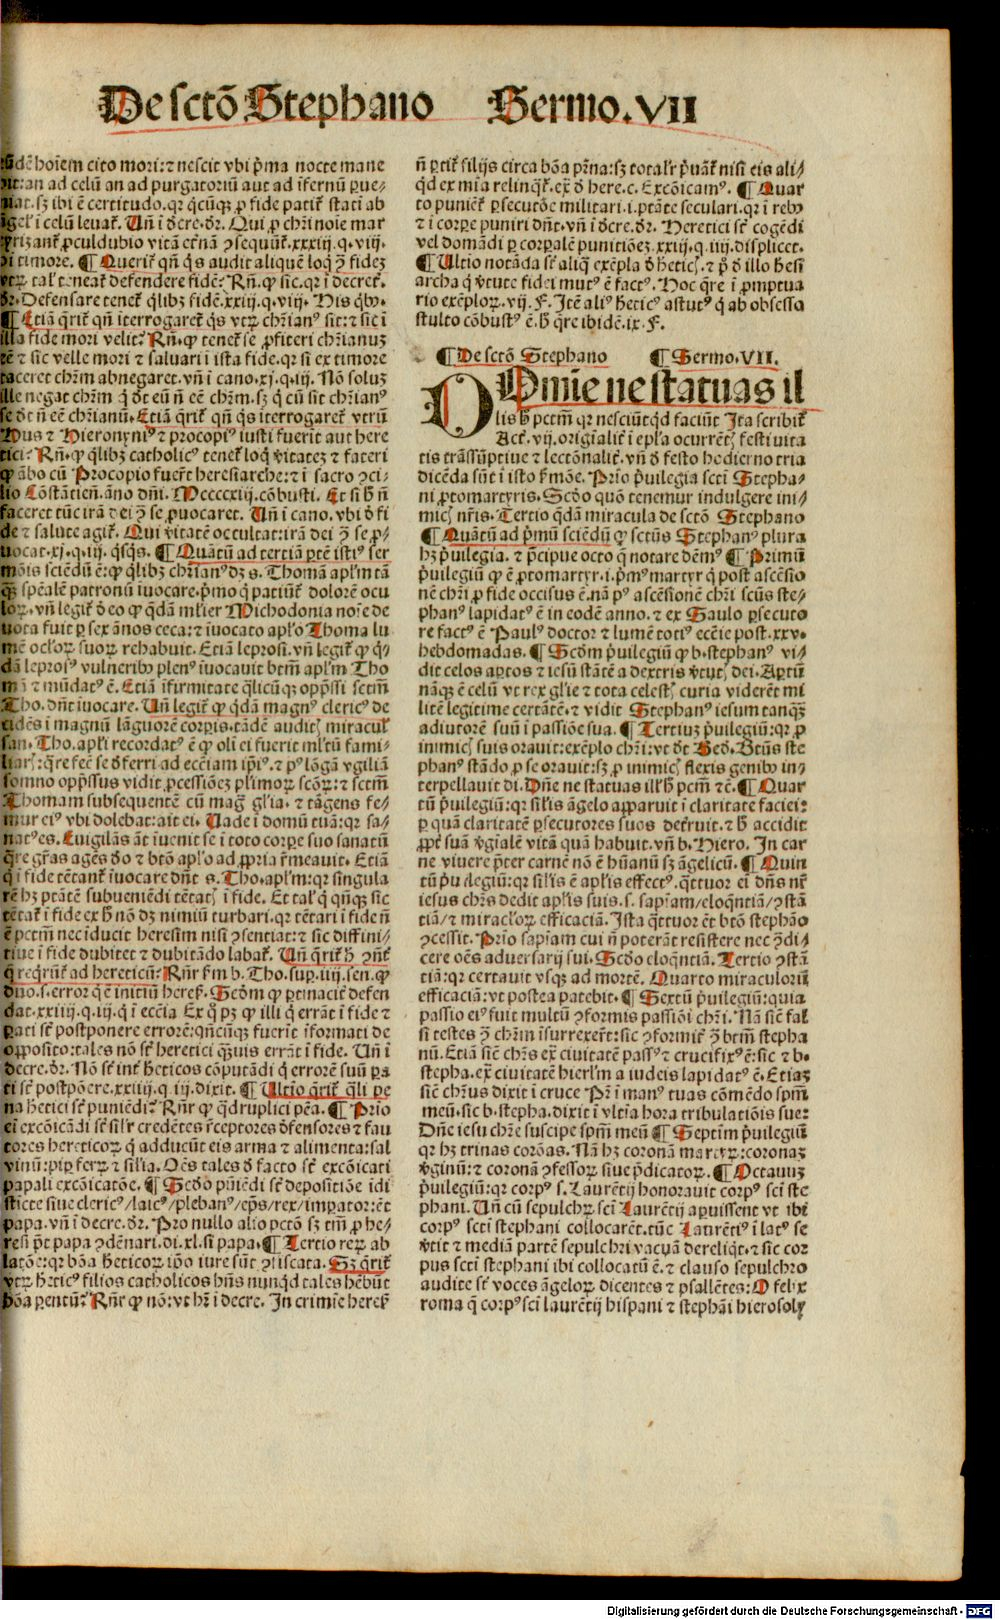 De sctō Stephano Sermo.VII
dē hoīem cito mori: ⁊ nescit vbi p̄ma nocte mane
an ad celū an ad purgatoriū aut ad īfernū ꝑue-
sꝫ ibi ē certitudo. qꝛ qͥcūqꝫ ꝓ fide patiū̄t stati ab
āgel' ī celū leuāt. Uñ ī dcre. dꝛ. Qui ꝓ chꝛi noīe mar
tyrizant̄ ꝓculdubio vitā et̄nā ꝯsequūt̄. xxxiij. q. viij.
timore. ¶ Querit̄ qñ qͥs audit aliquē loqͥ ꝯ̄ fidez
vtꝝ tal' teneat̄ defendere fidē? Rñ. ꝙ sic. qꝛ ī decret̄.
dꝛ. Defensare tenet̄ qͥlibꝫ fidē. xxiij. q. viij. His qͥbꝰ.
¶ Etiā q̄rit̄ qñ īterrogaret̄ qͥs vtꝝ chꝛianꝰ sit: ⁊ sic ī
illa fide mori velit? Rñ. ꝙ tenet̄ se ꝓfiteri chꝛianuꝫ
eē ⁊ sic velle mori ⁊ saluari ī ista fide. qꝛ si ex timore
taceret chꝛm abnegaret. vñ ī cano. xj. q. iij. Nō soluꝫ
ille negat chꝛm qͥ dt eū ñ eē chꝛm. sꝫ qͥ cū sit chꝛianꝰ
se dt ñ eē chꝛianū. Etiā q̄rit̄ qñ qͥs īterrogaret̄ vtrū
Hus ⁊ Hieronymꝰ ⁊ procopiꝰ iusti fuerīt aut here
tici? Rñ. ꝙ qͥlibꝫ catholicꝰ tenet̄ loqͥ vitatez ⁊ fateri
ꝙ ābo cū Procopio fuer̄t heresiarche: ⁊ ī sacro ꝯci-
lio Cōstātien̄. āno dn̄i. Mccccxiij. cōbusti. Et si h̄ ñ
faceret tūc irā dei ꝯ̄ se ꝓuocaret. Uñ ī cano. vbi d̄ fi
de ⁊ salute agit̄. Qui v̄itatē occultat: irā dei ꝯ̄ se ꝓ-
uocat. xj. q. iij. qͥsqͥs. ¶ Quātū ad tertiā ꝑtē istiꝰ ser
mōis sciēdū ē: ꝙ qͥlibꝫ chꝛianꝰ dꝫ s. Thomā apl'm tā
q̄ꝫ spēalē patronū īuocare. p̄mo qͥ patiūt̄ dolorē ocu
loꝝ. vñ legit̄ d̄ eo ꝙ q̄dā ml'ier Michodonia noīe de
uota fuit ꝑ sex ānos ceca: ⁊ īuocato apl'o Thoma lu
mē ocl'oꝝ suoꝝ rehabuit. Etiā leprosi. vñ legit̄ ꝙ qͥ-
dā leprosꝰ vulneribꝰ plenꝰ īuocauit btm̄ apl'm Tho
mā ⁊ mūdatꝰ ē. Etiā īfirmitate qͥlicūqꝫ opp̄ssi sctm̄
Tho. dn̄t īuocare. Uñ legit̄ ꝙ qͥdā magnꝰ clericꝰ de
cidēs ī magnū lāguorē corꝑis. tādē auditꝭ miracul'
san. Tho. apl'i recordatꝰ ē ꝙ oli ei fuerit ml'tū fami-
liarꝭ: q̄re fec̄ se dferri ad ecc̄iam ip̄iꝰ. ⁊ pꝰ lōgā vgiliā
somno opp̄ssus vidit ꝓcessionez pl'imoꝝ scōꝝ: ⁊ sctm̄
Thomam subsequentē cū maḡ gl'ia. ⁊ tāgens fe-
mur eiꝰ vbi dolebat: ait ei. Uade ī domū tuā: qꝛ sa-
natꝰ es. Euigilās āt īuenit se ī toto corꝑe suo sanatū
q̄re gr̄as agēs do ⁊ btō apl'o ad ꝓpria r̄meauit. Etiā
qͥ ī fide tētant̄ īuocare dn̄t s. Tho. apl'm: qꝛ singula
rē hꝫ ptātē subueniēdi tētatꝭ ī fide. Et tal' qͥ qn̄qꝫ sic
tētat̄ ī fide ex h̄ nō dꝫ nimiū turbari. qꝛ tētari ī fide ñ
ē pctm̄ nec īducit heresim nisi ꝯsentiat: ⁊ sic diffini-
tiue ī fide dubitet ⁊ dubitādo labat̄. Uñ q̄rit̄ h̄ ꝯn̄t̄
q̄ reqͥrūt̄ ad hereticū? Rñr̄ fm b. Tho. sup. iiij. sen. ꝙ
duo. s. error qͥ ē initiū heres̄. Scōm ꝙ ꝑtinacit̄ defen
dat. xxiiij. q. iij. qͥ ī ecc̄ia Ex qͦ pꝫ ꝙ illi qͥ errāt ī fide ⁊
ꝑati st̄ postponere errorē: qn̄cūqꝫ fuerīt īformati de
opposito: tales nō st̄ heretici q̄ꝫuis errāt ī fide. Uñ ī
decre. dꝛ. Nō st̄ int̄ h̄eticos cōputādi qͥ errorē suū ꝑa
ti st̄ postpōere. xxiiij. q. iij. dixit. ¶ Ultīo q̄rit̄ qͣli pe
na h̄etici st̄ puniēdi? Rñr̄ ꝙ q̄druplici pēa. ¶ Prīo
ei excōicādi st̄ sil'r credētes r̄ceptores d̄fensores ⁊ fau
tores hereticoꝝ qͥ adducūt eis arma ⁊ alimenta: sal
vinū: piꝑ ferꝝ ⁊ sil'ia. Oēs tales d̄ facto st̄ excōicati
papali excōicatōe. ¶ Scd̄o pūiēdi st̄ depositiōe idi
sticte siue clericꝰ / laicꝰ / plebanꝰ / ep̄s / rex / imꝑator: ēt
papa. vñ ī decre. dꝛ. Pro nullo alio pctō sꝫ tm̄ ꝓ he-
resi p̄t papa ꝯdēnari. di. xl. si papa. ¶ Tertio reꝝ ab
latōe: qꝛ bōa h̄eticoꝝ ip̄o iure sūt ꝯfiscata. Sꝫ q̄rit̄
vtꝝ h̄eticꝰ filios catholicos hn̄s nunqͥd tales hēbūt
bōa ꝑentū? Rñr̄ ꝙ nō: vt hꝛ ī decre. In crimīe heres̄
ñ ꝑtit̄ filijs circa bōa p̄rna: sꝫ total'r p̄uāt̄ nisi eis ali-
qͥd ex mīa relinqͥt̄. ex̄ d here. c. Excōicamꝰ. ¶ Quar
to puniēt̄ ꝑsecutōe militari. i. ptāte seculari. qꝛ ī rebꝰ
⁊ ī corꝑe puniri dn̄t. vñ ī dcre. dꝛ. Heretici st̄ cogēdi
vel domādi ꝑ corꝑalē punitioez. xxiij. q. iiij. displicet.
¶ Ultīo notāda st̄ aliqͣ exēpla d̄ h̄eticꝭ. ⁊ p̄ d illo h̄esi
archa qͥ v̄tute fidei mutꝰ ē factꝰ. Hoc q̄re ī prōptua
rio exēploꝝ. vij. F. Itē aliꝰ h̄eticꝰ astutꝰ qͥ ab obsessa
stulto cōbustꝰ ē. h̄ q̄re ibidē. ix. F.
¶ De sctō Stephano ¶ Sermo. VII.
DOmīe ne statuas il
lis h̄ pctm̄ qꝛ nesciūt qͥd faciūt Ita scribit̄
Act. vij. origīalit̄ ī epl'a ocurrētꝭ festi vita
tis trāssūptiue ⁊ lectōnalit̄. vñ d̄ festo hodierno tria
dicēda sūt ī isto s̄mōe. Prīo p̄uilegia scti Stepha-
ni ꝓtomartyris. Scdō quō tenemur indulgere ini-
micꝭ nr̄is. Tertio q̄dā miracula de sctō Stephano
¶ Quātū ad p̄mū sciēdū ꝙ sctus Stephanꝰ plura
hꝫ p̄uilegia. ⁊ p̄cipue octo q̄ notare dēmꝰ ¶ Primū
p̄uilegiū ꝙ ē ꝓtomartyr. i. p̄mꝰ martyr qͥ post ascēsio
nē chꝛi ꝓ fide occisus ē. nā pꝰ ascēsionē chꝛi scūs ste-
phanꝰ lapidatꝰ ē in eodē anno. ⁊ ex Saulo ꝑsecuto
re factꝰ ē Paulꝰ doctor ⁊ lumē totiꝰ ecc̄ie post. xxv.
hebdomadas. ¶ Scōm p̄uilegiū ꝙ b. stephanꝰ vi-
dit celos aꝑtos ⁊ iesū stātē a dextris v̄tutꝭ dei. Aꝑtū
nāqꝫ ē celū vt rex gl'ie ⁊ tota celestꝭ curia viderēt mi
litē legitime certātē. ⁊ vidit Stephanꝰ iesum tanqꝫ̄
adiutorē suū ī passiōe sua. ¶ Tertiuꝫ p̄uilegiū: qꝛ ꝓ
inimicꝭ suis orauit: exēplo chꝛi: vt dt Bed. Btūs ste
phanꝰ stādo ꝓ se orauit: sꝫ ꝓ inimicꝭ flexis genibꝰ in-
terpellauit di. Dn̄e ne statuas ill' h̄ pctm̄ ⁊c̄. ¶ Quar
tū p̄uilegiū: qꝛ sil'is āgelo apparuit ī claritate faciei:
ꝑ quā claritatē ꝑsecutores suos deterruit. ⁊ h̄ accidit
ꝓpt̄ suā v̄gīalē vitā quā habuit. vñ b. Hiero. In car
ne viuere p̄ter carnē nō ē hūanū sꝫ āgelicū. ¶ Quin
tū p̄uilegiū: qꝛ sil'is ē apl'is effectꝰ. q̄ttuor ei dn̄s nr̄
iesus chꝛs dedit apl'is suis. s. sapiam / eloqn̄tiā / ꝯstā
tiā / ⁊ miracl'oꝝ efficaciā. Ista q̄ttuor ēt btō stephāo
ꝯcessit. Prīo sapiam cui ñ poterāt resistere nec ꝯdi-
cere oēs aduersarij sui. Scdō eloqn̄tiā. Tertio ꝯstā
tiā: qꝛ certauit vsqꝫ ad mortē. Quarto miraculoriū
efficaciā: vt postea patebit. ¶ Sextū p̄uilegiū: quia
passio eiꝰ fuit multū ꝯformis passiōi chꝛi. Nā sic̄ fal
si testes ꝯ̄ chꝛm īsurrexer̄t: sic ꝯformit̄ ꝯ̄ btm̄ stepha
nū. Etiā sic̄ chꝛs ex̄ ciuitatē passꝰ ⁊ crucifixꝰ ē: sic ⁊ b.
stepha. ex̄ ciuitatē hierl'm a iudeis lapidatꝰ ē. Etiaꝫ
sic̄ chꝛus dixit ī cruce Pr̄ ī manꝰ tuas cōmēdo spm̄
meū. sic b. stepha. dixit ī vltīa hora tribulatiōis sue:
Dn̄e iesu chꝛe suscipe spm̄ meū ¶ Septim p̄uilegiū
qꝛ hꝫ trinas corōas. Nā hꝫ coronā martyꝝ: coronaꝫ
v̄ginū: ⁊ coronā ꝯfessoꝝ siue p̄dicatoꝝ. ¶ Octauuꝫ
p̄uilegiū: qꝛ corpꝰ s. Laurētij honorauit corpꝰ sci ste
phani. Uñ cū sepulchꝝ sci Laurētij aꝑuissent vt ibi
corpꝰ scti stephani collocarēt. tūc Laurētiꝰ ī latꝰ se
v̄tit ⁊ mediā partē sepulchri vacuā dereliqͥt. ⁊ sic cor
pus scti stephani ibi collocatū ē. ⁊ clauso sepulchro
audite st̄ voces āgeloꝝ dicentes ⁊ psallētes: O felix
roma q̄ corpꝰ sci laurētij hispani ⁊ stephāi hierosoly
Digitalisierung gefördert durch die Deutsche Forschungsgemeinschaft - DFG